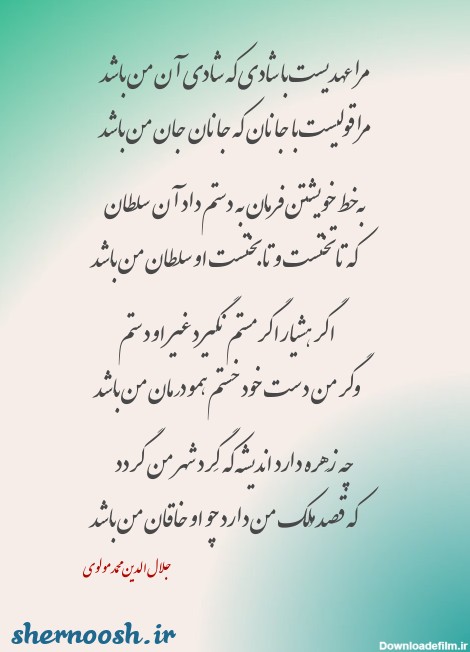 مرا عهدیست با شادی که شادی آن من باشد
مرا قولیست با جانان که جانان جان من باشد
به خط خویشتن فرمان به دستم داد آن سلطان
که تا تختست و تا بختست او سلطان من باشد
اگر هشیار اگر مستم نگیرد غیر او دستم
وگر من دست خود خستم همو درمان من باشد
چه زهره دارد اندیشه که گِرد شهر من گردد
که قصد ملک من دارد چو او خاقان من باشد
جلال الدین محمد مولوی
shernoosh.ir
Downloadefilm.ir